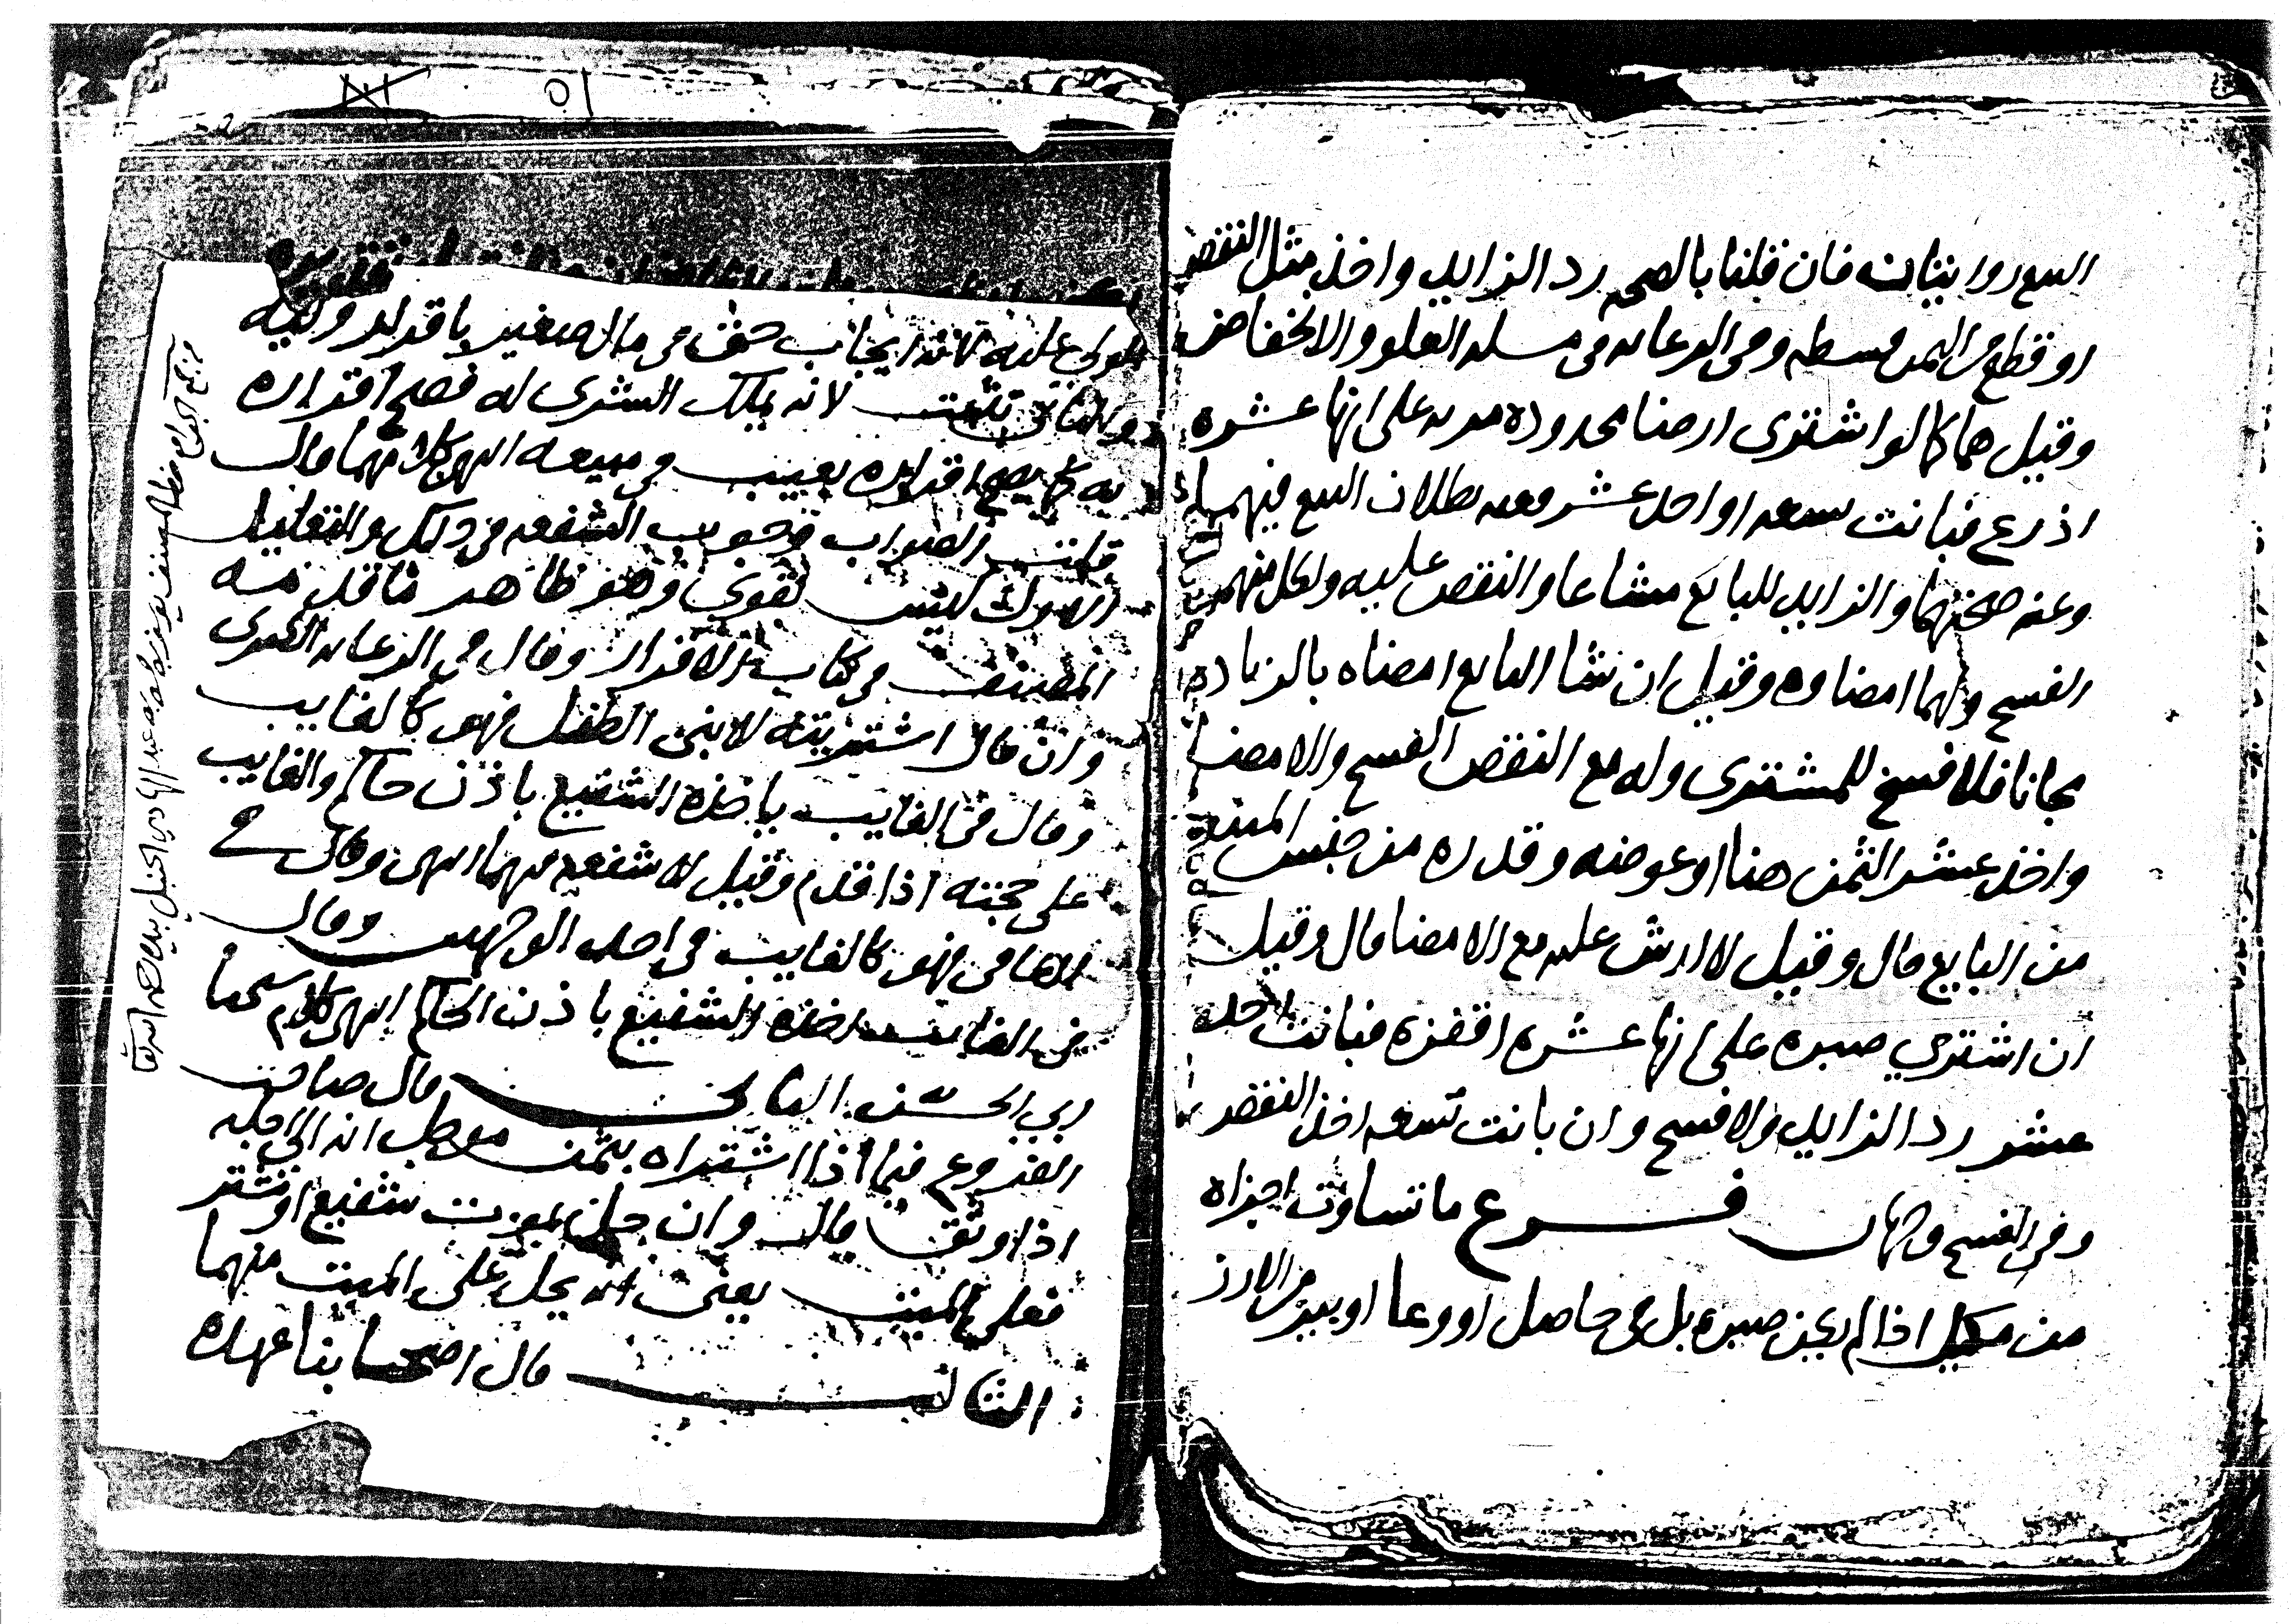 البيع روايتان فان قلنا بالصحه رد الزايد واخذ مثل النقص
او قطع من الثمن قسطه وفي الرعايه في مسله العلو والانخفاض
وقيل هما كما لو اشترى ارضا محدوده مربه على انها عشره
اذرع فبانت تسعه او احد عشر فعنه بطلان البيع فيهما
وعنه صحتهما والزايد للبايع مشاعا والنقص عليه ولكل منهم
الفسح ولهما امضاوه وقيل ان شا البايع امضاه بالزياده
مجانا فلا فسخ للمشترى وله مع النقص الفسح والامضا
واخذ عشر الثمن هنا او عوضه وقدره من جنس المبيع
من البايع قال وقيل لا ارش عليه مع الامضا قال وقيل
ان اشترى صبره على انها عشره اقفزه فبانت احد
عشر رد الزايد ولا فسح وان بانت تسعه اخذ النقص
وفي الفسح وجهان فرع ما تساوت اجزاه
من مكيل اذا لم يكن صبره بل في حاصل او وعا او بيدر من الارز
١٥
المولى عليه لانه ايجاب حق في مال صغير باقرار وليه
والثاني تثبت لانه يملك الشرى له فصح اقراره
به كما يصح اقراره بعيب في مبيعه انتهى كلامهما قال
قلت الصواب وجوب الشفعه في ذلك والتعليل
الاول ليس بقوي وهو ظاهر ما قدمه
المصنف في كتاب الاقرار وقال في الرعايه الكبرى
وان قال اشتريته لابني الطفل فهو كالغايب
وقال في الغايب ياخذه الشفيع باذن حاكم والغايب
على حجته اذا قدم وقيل لا شفعه فيهما انتهى وقال في
فهو كالغايب في احد الوجهين وقال
في الغايب اخذه الشفيع باذن الحاكم انتهى كلام شيخنا
قال صاحب
الفروع فيما اذا اشتراه بثمن موجل انه الى اجله
اذا وثق قال وان حل بموت شفيع او مشتر
فعلى الميت يعني انه يحل على الميت منهما
الثالث قال اصحابنا عهده